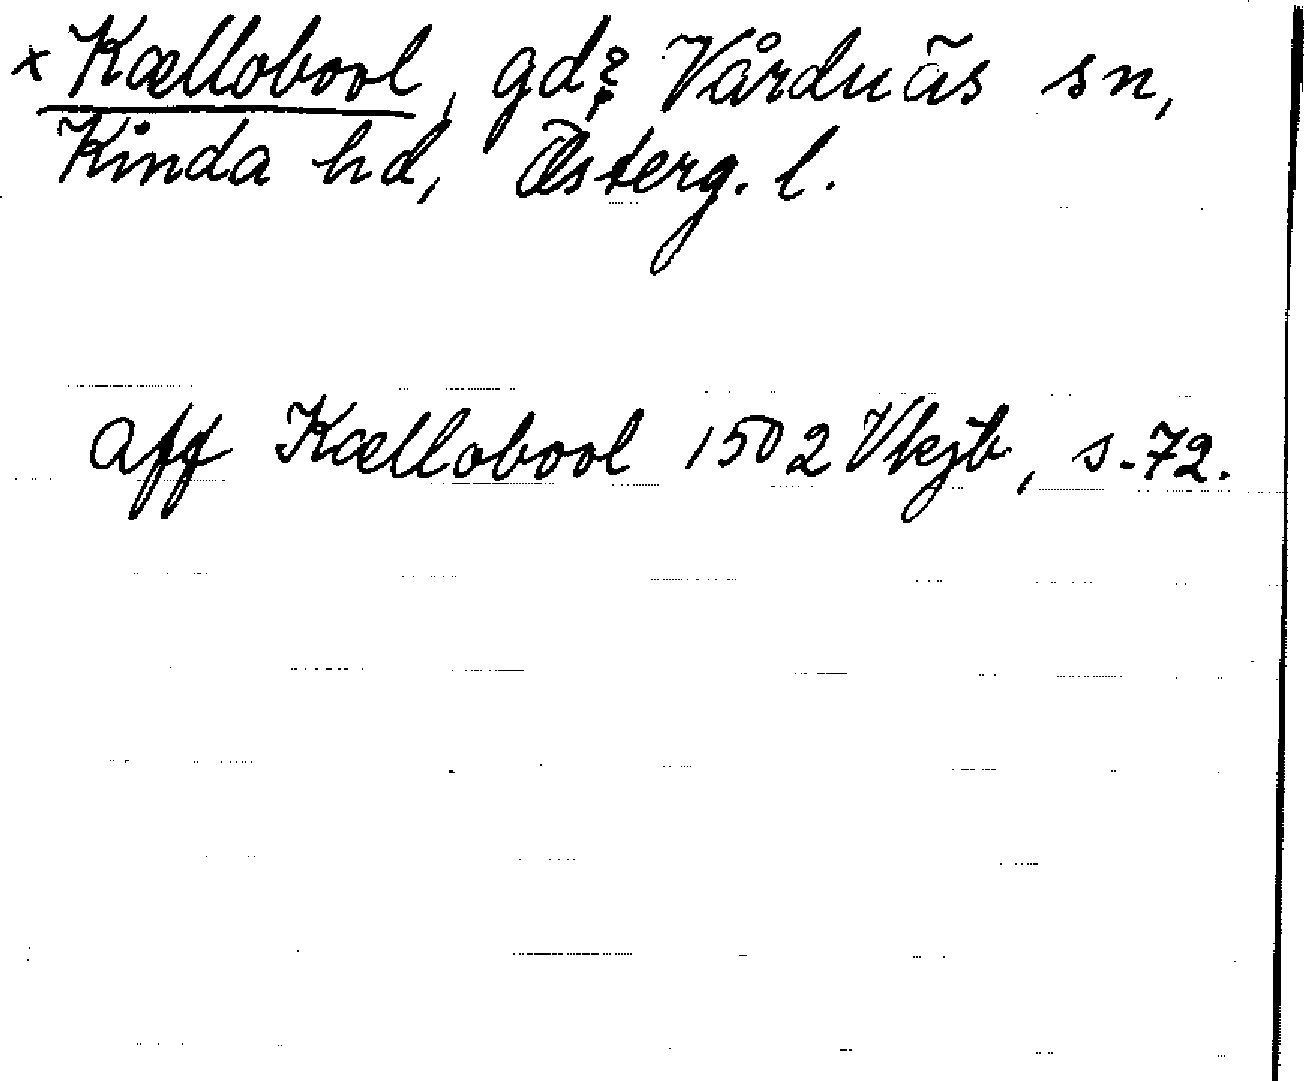 x Kællobool, gd? Vårdnäs sn,
Kinda hd, Österg. l.
aff Kællobool 1502 Vkjb, s. 72.